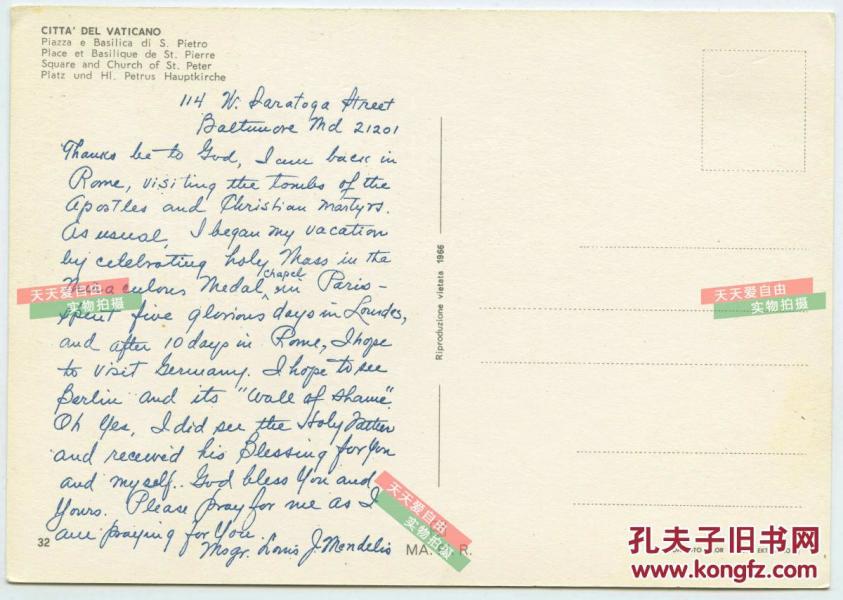 CITTA' DEL VATICANO
Piazza e Basilica di S. Pietro
Place et Basilique de St. Pierre
Square and Church of St. Peter
Platz und Hl. Petrus Hauptkirche
114 W. Saratoga Street
Baltimore Md 21201
Thanks be to God, I am back in
Rome, visiting the tombs of the
Apostles and Christian Martyrs.
As usual, I began my vacation
by celebrating holy Mass in the
Miraculous Medal chapel in Paris -
spent five glorious days in Lourdes,
and after 10 days in Rome, I hope
to visit Germany. I hope to see
Berlin and its "Wall of Shame".
Oh Yes, I did see the Holy Father
and received his Blessing for You
and myself. God bless You and
Yours. Please pray for me as I
am praying for You.
Msgr. Louis J. Mendelis
32
MA. R.
Riproduzione vietata 1966
天天爱自由
实物拍摄
天天爱自由
实物拍摄
天天爱自由
实物拍摄
孔夫子旧书网
www.kongfz.com